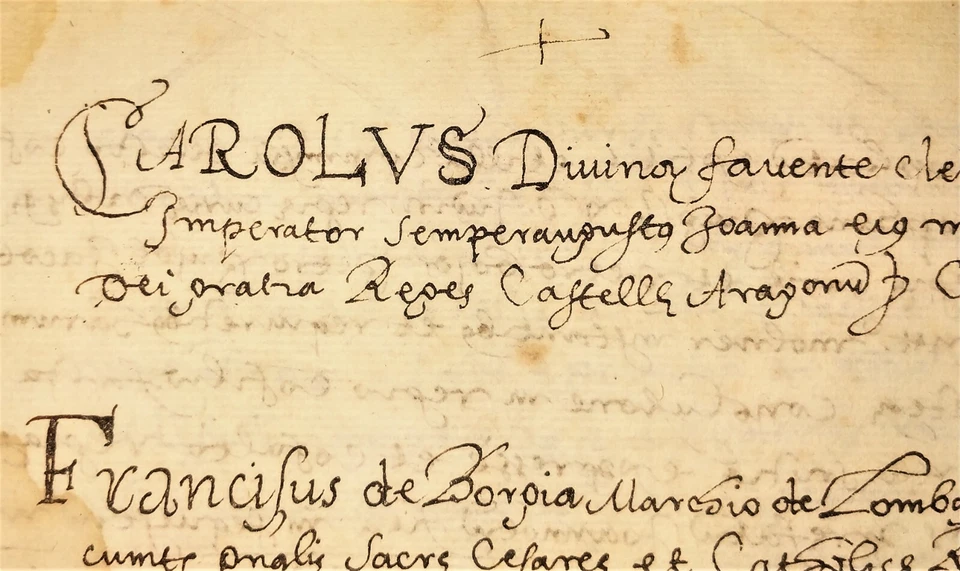 CAROLVS Divina favente cle
Imperator semperaugustꝰ Joanna eiꝰ m
Dei gratia Reges Castellę Aragonũ
Francisus de Borgia Marchio de Lomba
Sacrę Cesareę et Catholicę